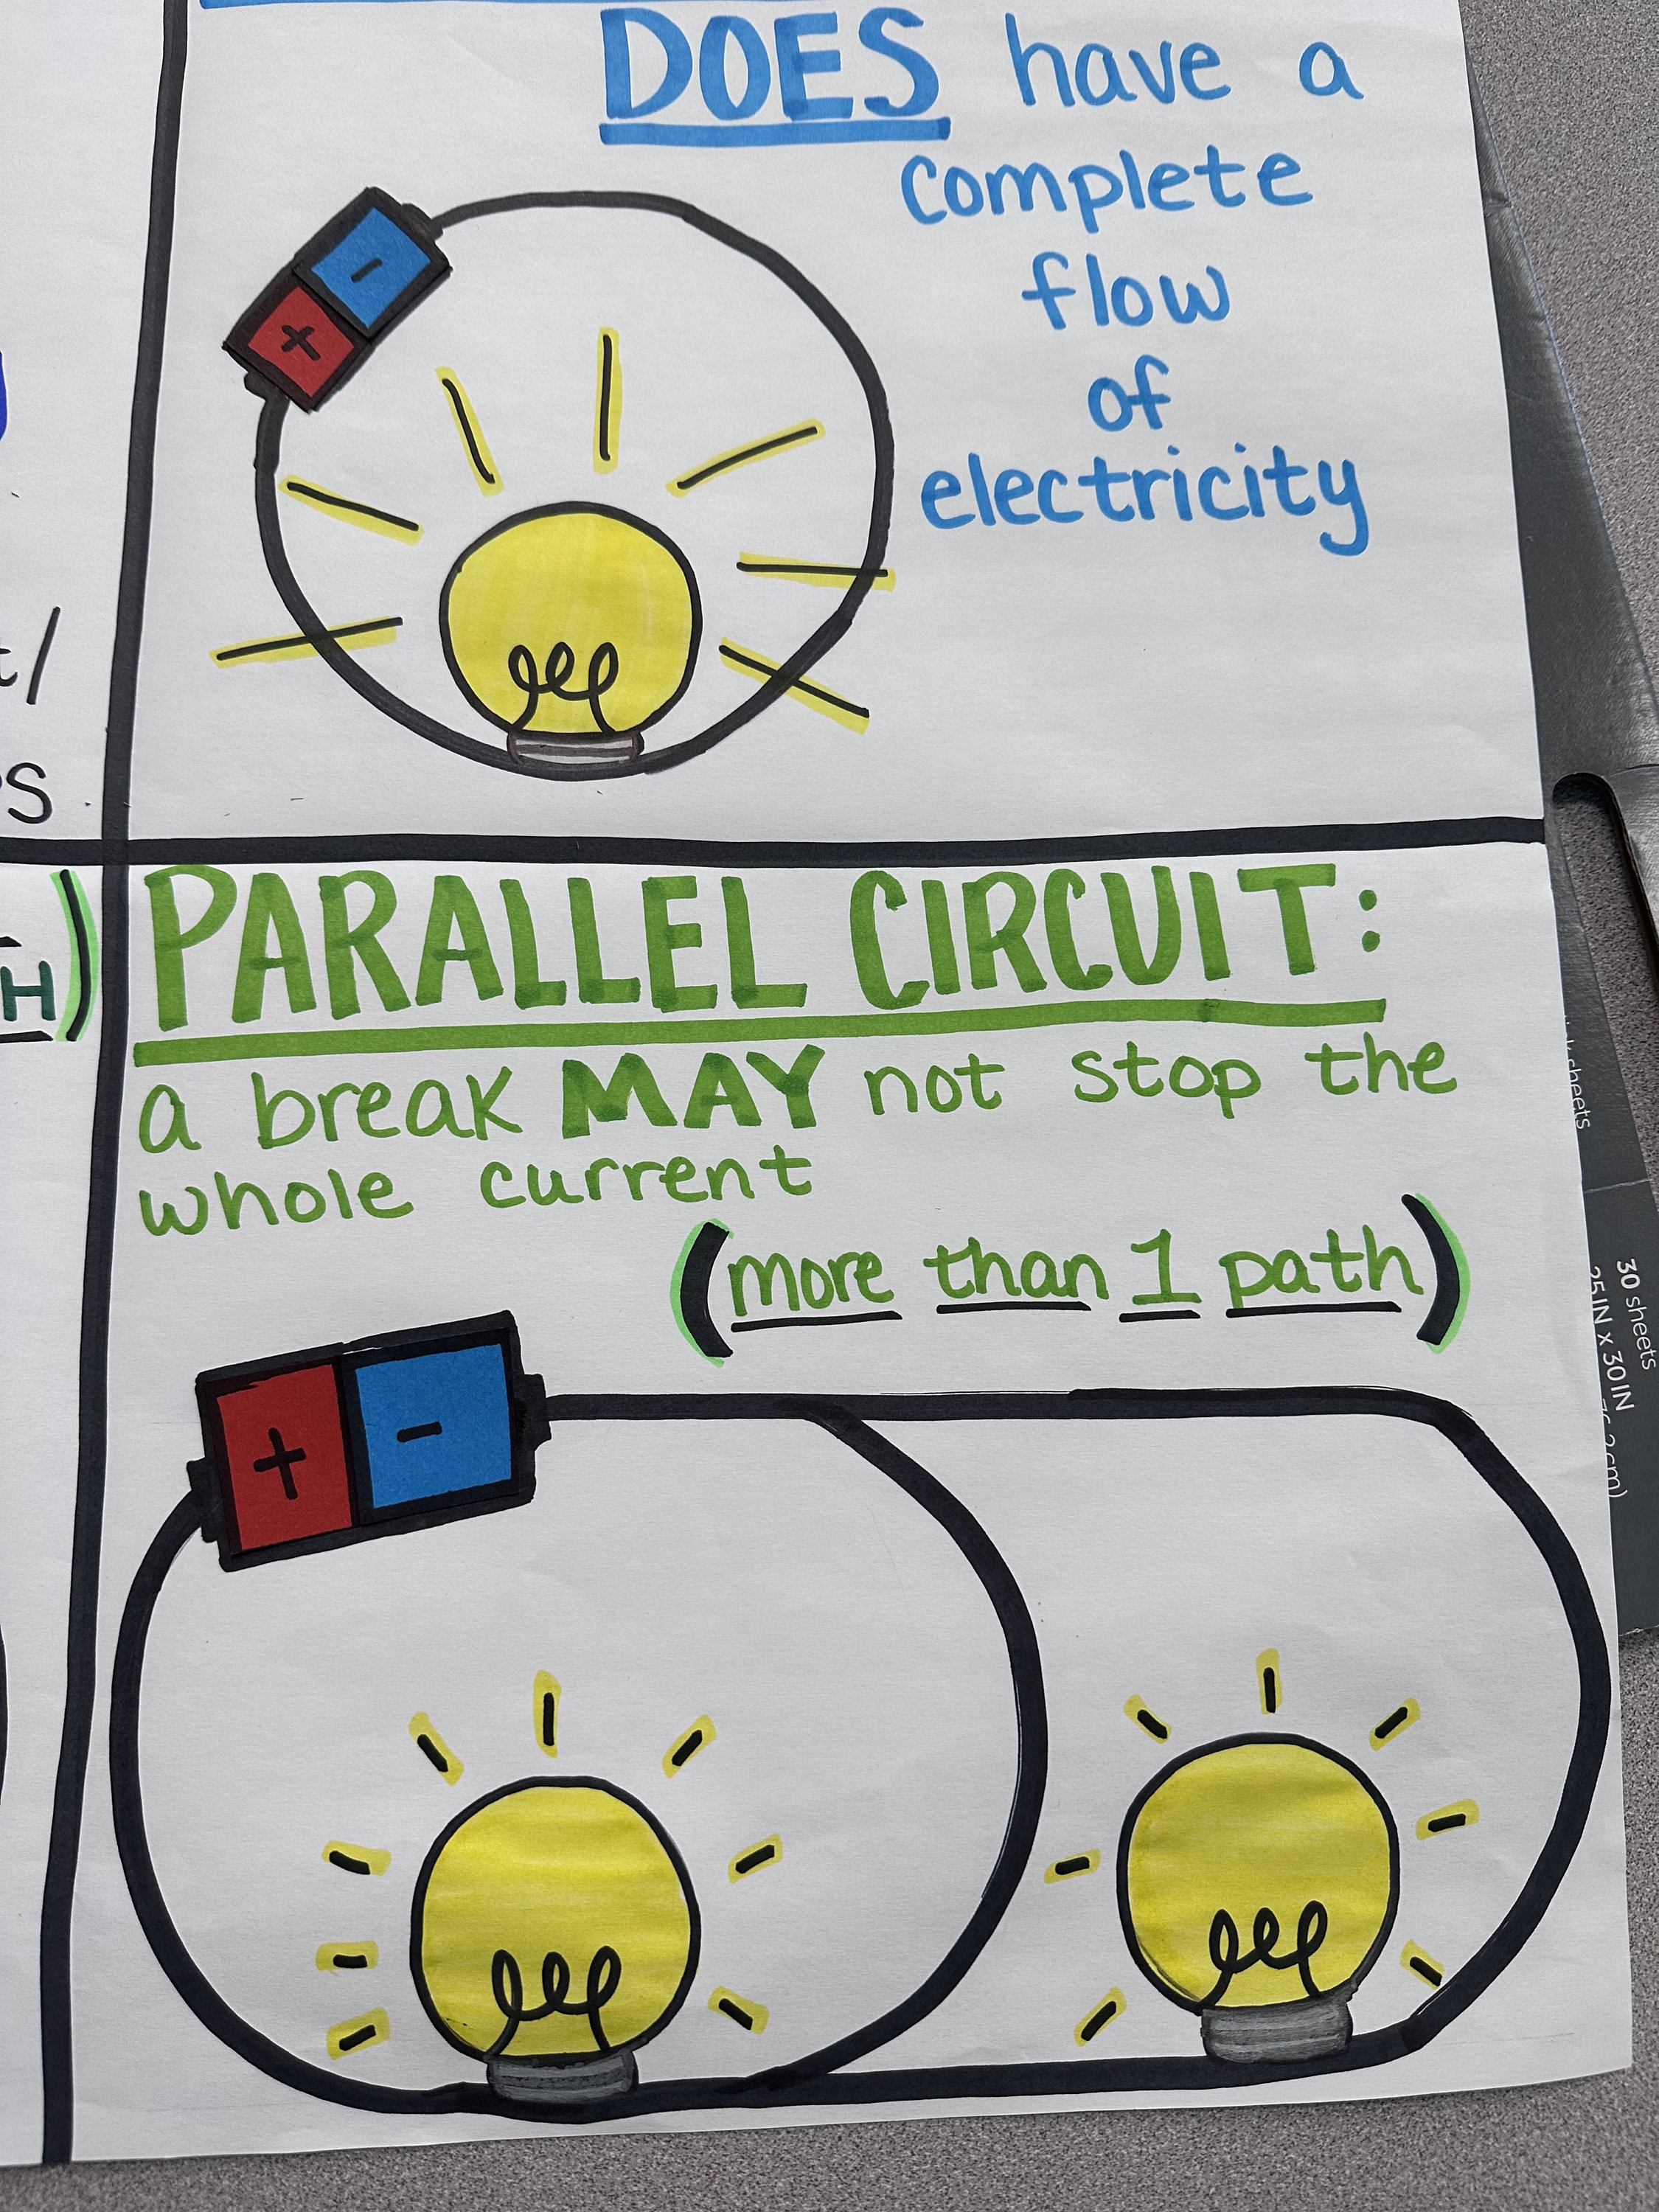 DOES have a
complete
flow
of
electricity
-
+
PARALLEL CIRCUIT:
a break MAY not stop the
whole current
(more than 1 path)
+ -
30 sheets
25 IN x 30 IN